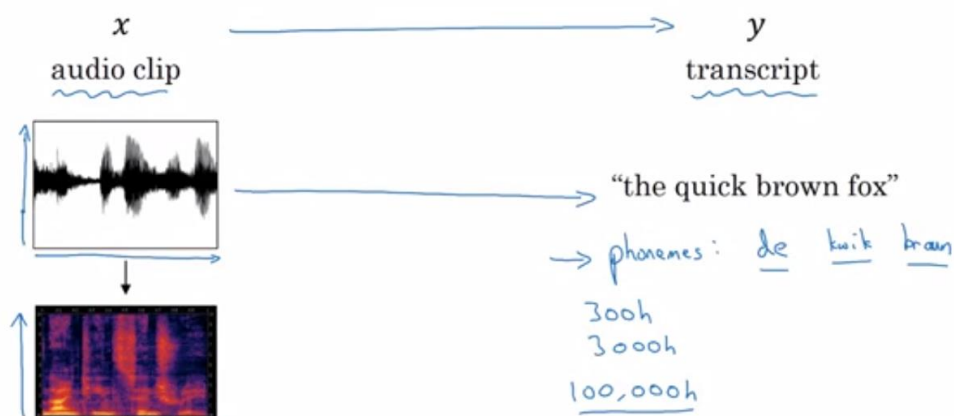 x y
audio clip transcript
“the quick brown fox”
phonemes: de kwik braun
300h
3000h
100,000h